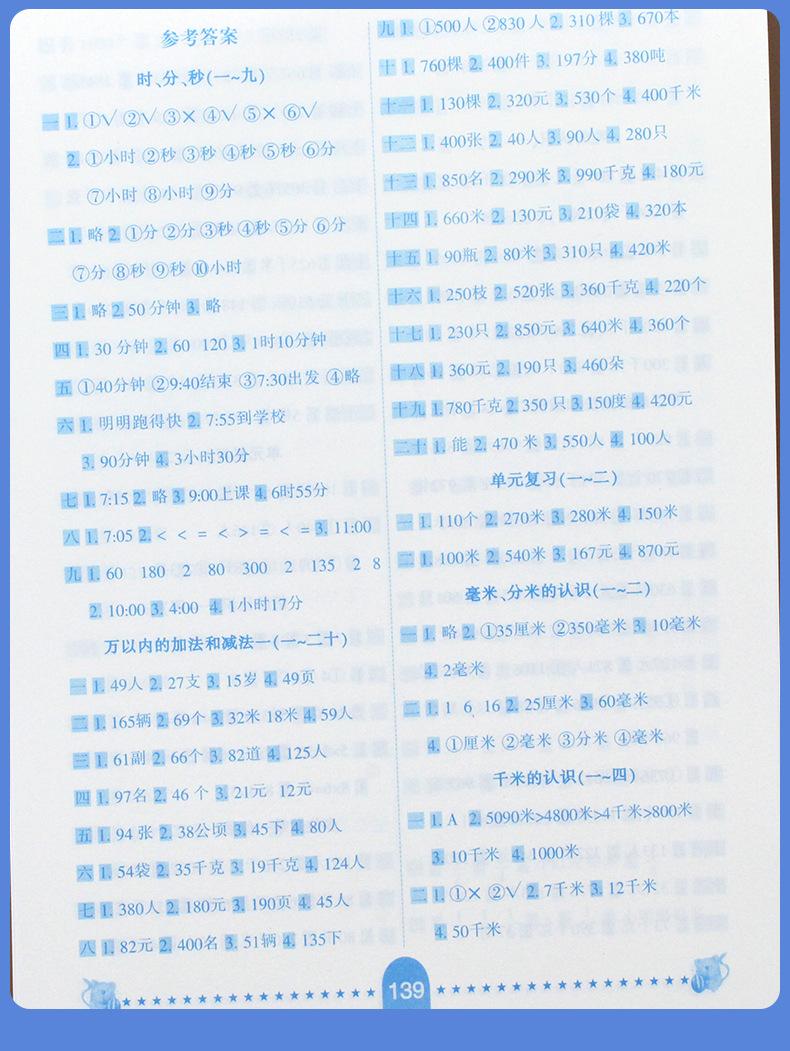 参考答案
时、分、秒(一~九)
一 1. ①√ ②√ ③× ④√ ⑤× ⑥√
2. ①小时 ②秒 ③秒 ④秒 ⑤秒 ⑥分
⑦小时 ⑧小时 ⑨分
二 1. 略 2. ①分 ②分 ③秒 ④秒 ⑤分 ⑥分
⑦分 ⑧秒 ⑨秒 ⑩小时
三 1. 略 2. 50分钟 3. 略
四 1. 30分钟 2. 60 120 3. 1时10分钟
五 ①40分钟 ②9:40结束 ③7:30出发 ④略
六 1. 明明跑得快 2. 7:55到学校
3. 90分钟 4. 3小时30分
七 1. 7:15 2. 略 3. 9:00上课 4. 6时55分
八 1. 7:05 2. < < = < > = < = 3. 11:00
九 1. 60 180 2 80 300 2 135 2 8
2. 10:00 3. 4:00 4. 1小时17分
万以内的加法和减法一(一~二十)
一 1. 49人 2. 27支 3. 15岁 4. 49页
二 1. 165辆 2. 69个 3. 32米 18米 4. 59人
三 1. 61副 2. 66个 3. 82道 4. 125人
四 1. 97名 2. 46个 3. 21元 12元
五 1. 94张 2. 38公顷 3. 45下 4. 80人
六 1. 54袋 2. 35千克 3. 19千克 4. 124人
七 1. 380人 2. 180元 3. 190页 4. 45人
八 1. 82元 2. 400名 3. 51辆 4. 135下
九 1. ①500人 ②830人 2. 310棵 3. 670本
十 1. 760棵 2. 400件 3. 197分 4. 380吨
十一 1. 130棵 2. 320元 3. 530个 4. 400千米
十二 1. 400张 2. 40人 3. 90人 4. 280只
十三 1. 850名 2. 290米 3. 990千克 4. 180元
十四 1. 660米 2. 130元 3. 210袋 4. 320本
十五 1. 90瓶 2. 80米 3. 310只 4. 420米
十六 1. 250枝 2. 520张 3. 360千克 4. 220个
十七 1. 230只 2. 850元 3. 640米 4. 360个
十八 1. 360元 2. 190只 3. 460朵
十九 1. 780千克 2. 350只 3. 150度 4. 420元
二十 1. 能 2. 470米 3. 550人 4. 100人
单元复习(一~二)
一 1. 110个 2. 270米 3. 280米 4. 150米
二 1. 100米 2. 540米 3. 167元 4. 870元
毫米、分米的认识(一~二)
一 1. 略 2. ①35厘米 ②350毫米 3. 10毫米
4. 2毫米
二 1. 1 6 16 2. 25厘米 3. 60毫米
4. ①厘米 ②毫米 ③分米 ④毫米
千米的认识(一~四)
一 1. A 2. 5090米>4800米>4千米>800米
3. 10千米 4. 1000米
二 1. ①× ②√ 2. 7千米 3. 12千米
4. 50千米
139